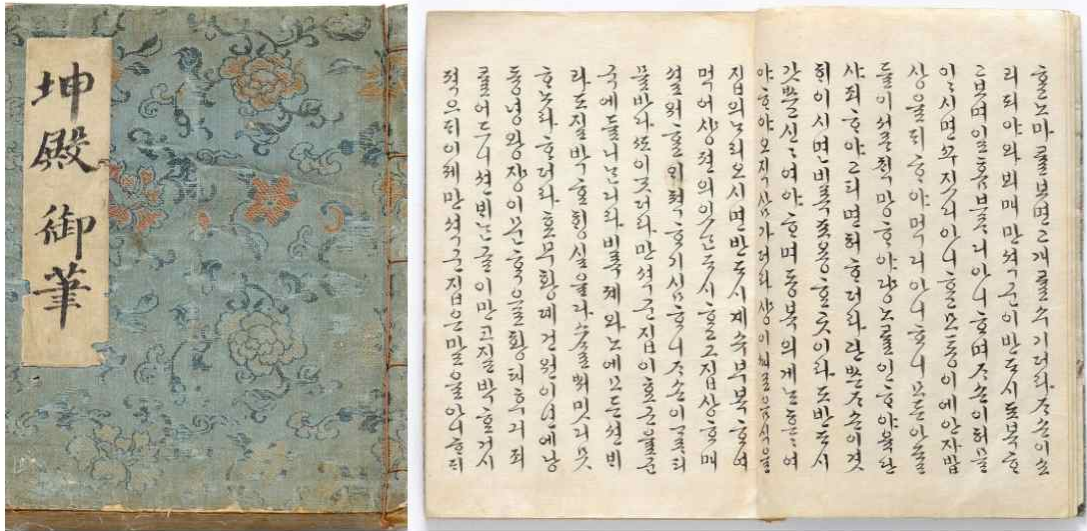 坤殿御筆
ᄒᆞᆯ노마ᄅᆞᆯ보면고개ᄅᆞᆯ수기더라ᄌᆞ손이소
리되야와뵈매만셕군이반ᄃᆞ시됴복ᄒᆞ
고보며일홈브ᄅᆞ디아니ᄒᆞ며ᄌᆞ손이허믈
이시면ᄭᅮ짓디아니ᄒᆞ고모통이에안자밥
상을ᄃᆡᄒᆞ야먹디아니ᄒᆞ니모ᄃᆞᆫ아ᄃᆞᆯ
들이서ᄅᆞ최망ᄒᆞ야댱노ᄅᆞᆯ인ᄒᆞ야육단
샤죄ᄒᆞ야고티면허ᄒᆞ더라관ᄡᅳᆫᄌᆞ손이겻
ᄒᆡ이시면비록죠용ᄒᆞᆫ곳이라도반ᄃᆞ시
갓ᄡᅳᆯ여야ᄒᆞ며동복의게ᄂᆞᆫ
야ᄒᆞ야오직삼가더라샹이ᄣᅢ로음식을
집의ᄂᆞ리오시면반ᄃᆞ시계슈부복ᄒᆞ여
먹어샹젼의이ᄂᆞᆫᄃᆞ시ᄒᆞᆯ고집상ᄒᆞ매
셜워ᄒᆞ기심ᄒᆞ니ᄌᆞ손이ᄀᆞᄅᆞ치
믈바다ᄯᅩ이ᄀᆞᆺ더라만셕군집이효근으로군
국에들니ᄂᆞᆫ디라비록졔와노에모ᄃᆞᆫ션ᄇᆡ
라도질박ᄒᆞᆫᄒᆡᆼ실을다밋디못
ᄒᆞ노라ᄒᆞ더라효무황뎨건원이년에낭
듕녕왕장이문ᄒᆞᆨ으로황태후긔죄
ᄅᆞᆯ어드니션ᄇᆡᄂᆞᆫ글이만코질박ᄒᆞ거시
젹으되이제만셕군집은말을아니ᄒᆞ되